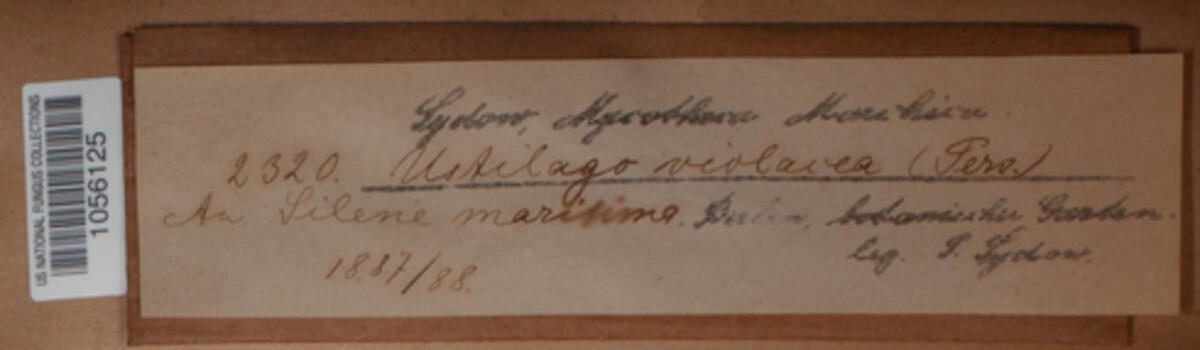 US NATIONAL FUNGUS COLLECTIONS
1056125
Sydow, Mycotheca Marchica.
2320. Ustilago violacea (Pers.)
An Silene maritima. Berlin, botanischer Garten.
leg. P. Sydow.
1887/88.